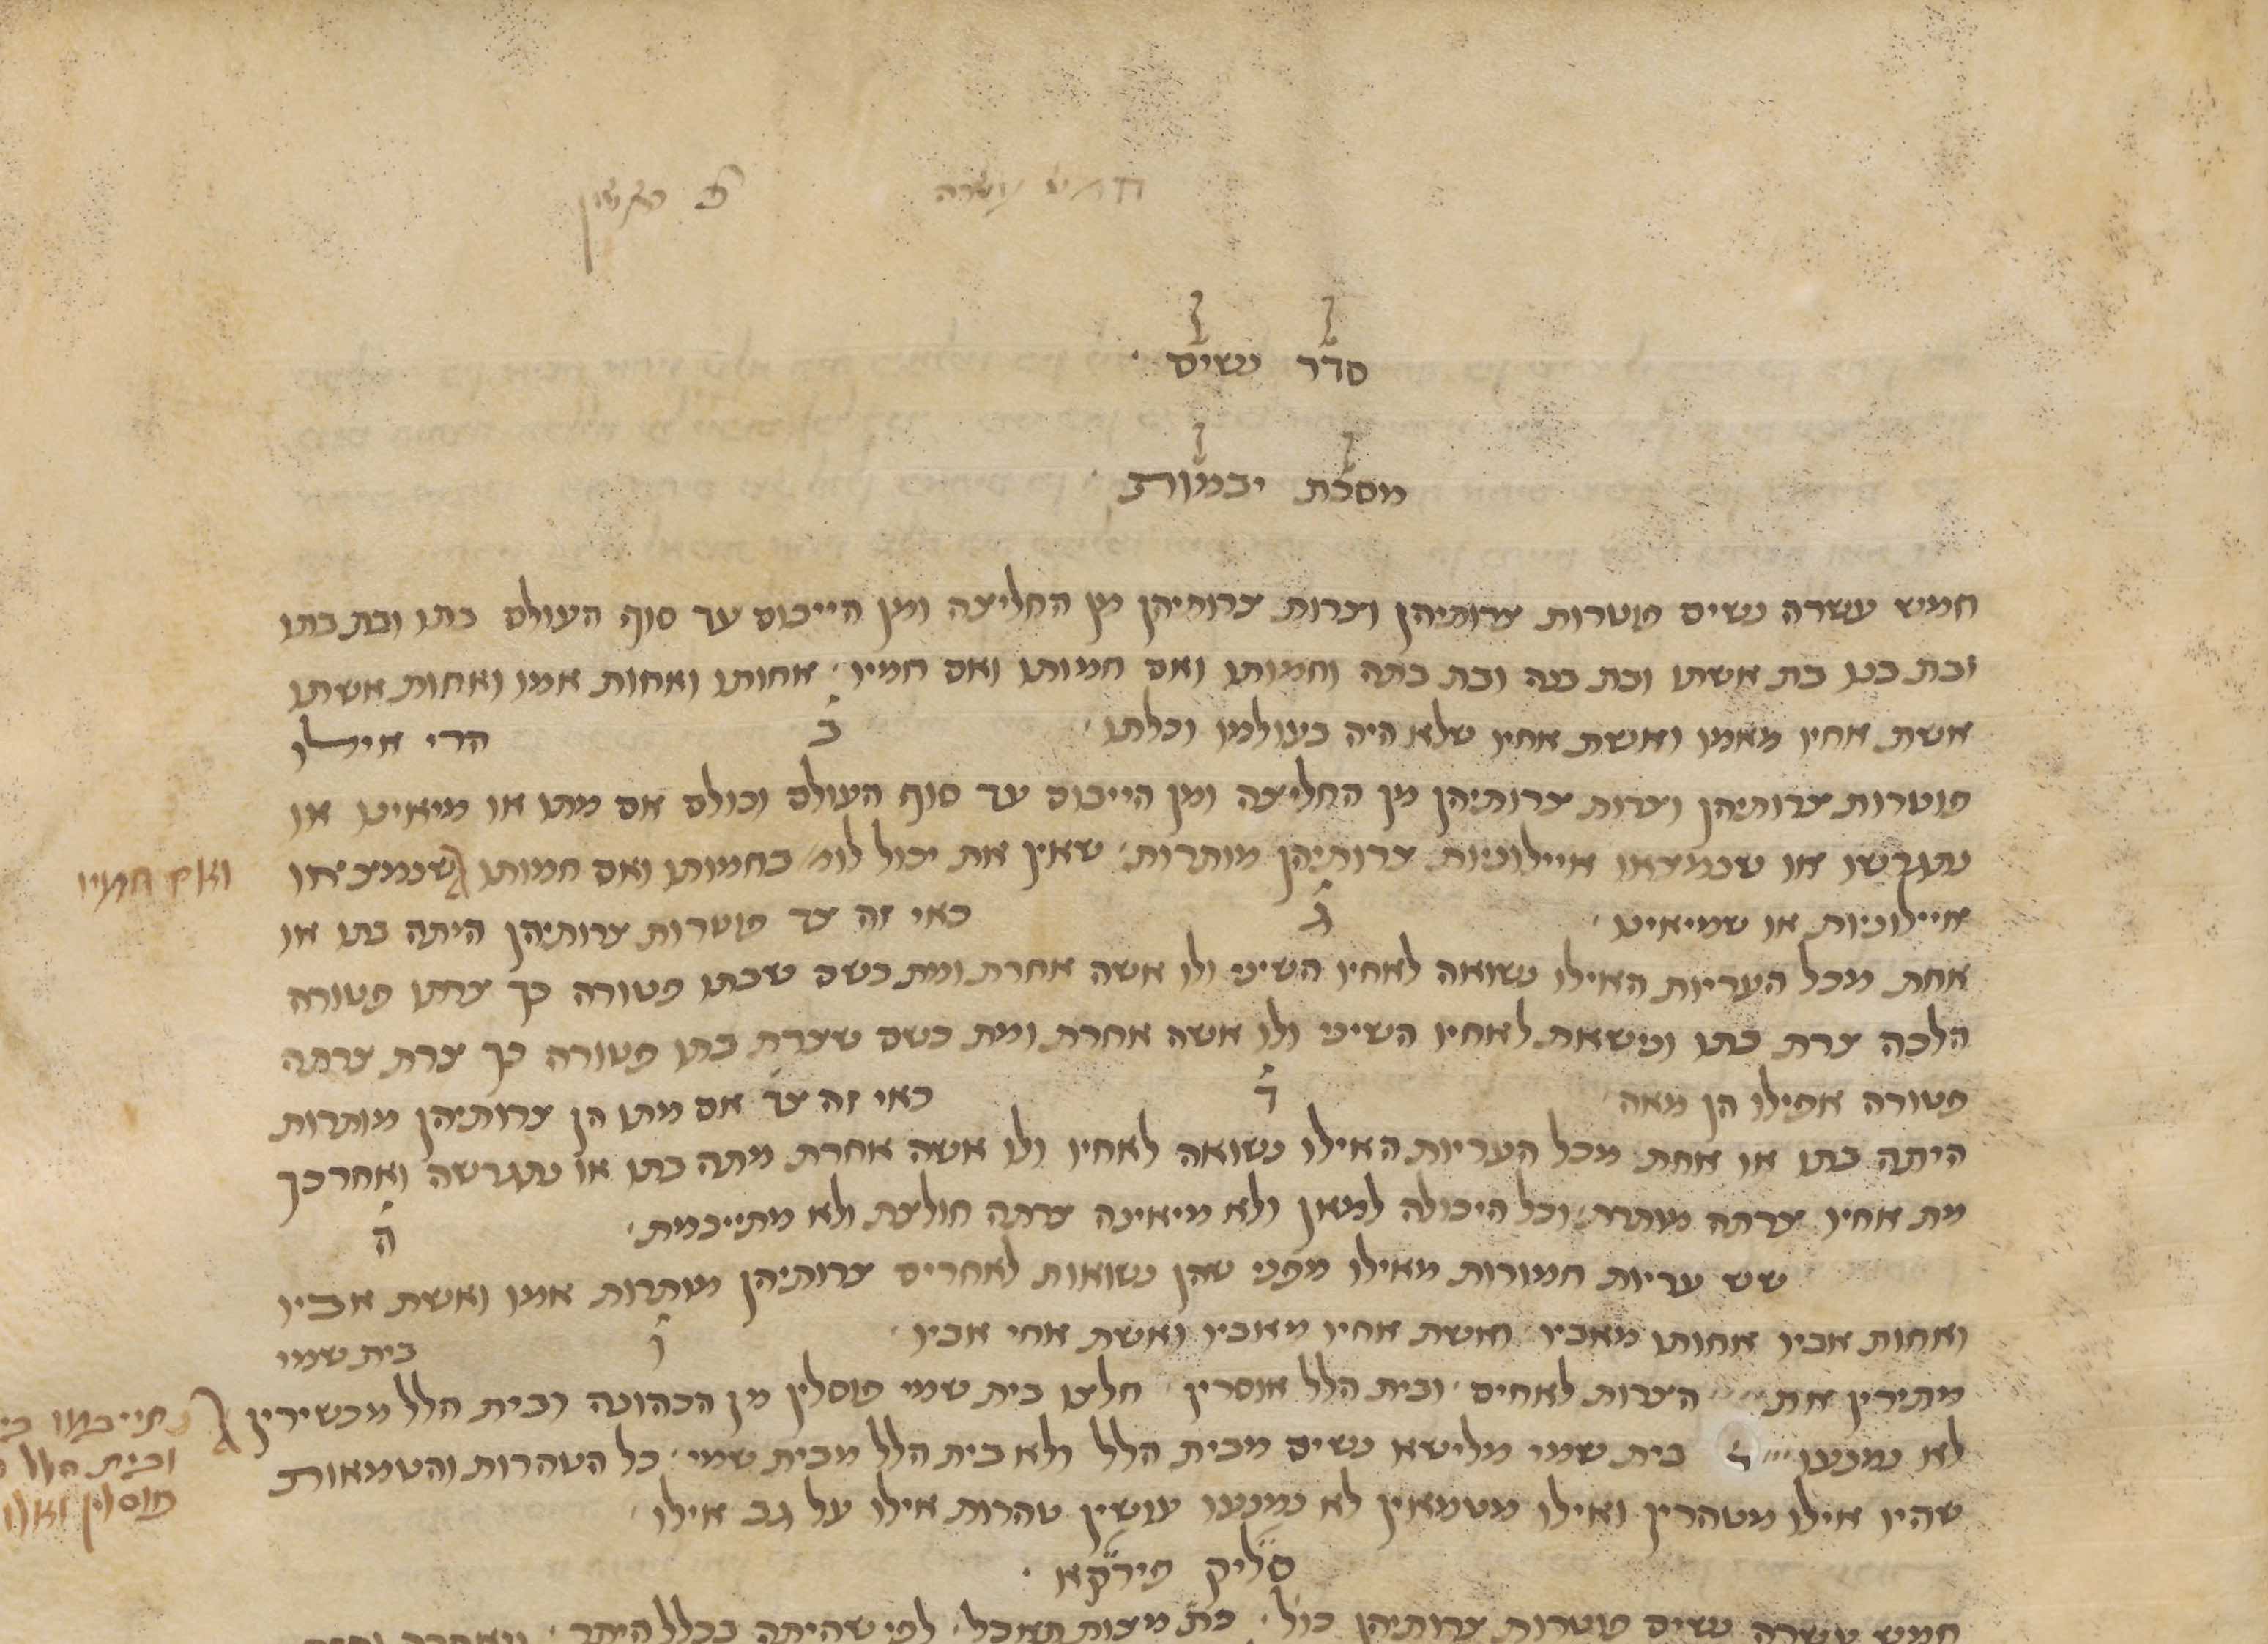 חמש עשרה פ ראשון
סדר נשים ·
מסכת יבמות ·
חמש עשרה נשים פוטרות צרותיהן וצרות צרותיהן מן החליצה ומן הייבום עד סוף העולם בתו ובת בתו
ובת בנו בת אשתו ובת בנה ובת בתה וחמותו ואם חמותו ואם חמיו· אחותו ואחות אמו ואחות אשתו
אשת אחיו מאמו ואשת אחיו שלא היה בעולמו וכלתו· ב הרי אילו
פוטרות צרותיהן וצרות צרותיהן מן החליצה ומן הייבום עד סוף העולם וכולם אם מתו או מיאינו או
נתגרשו או שנמצאו איילוניות צרותיהן מותרות· שאין את יכול לומ׳ בחמותו ואם חמותו שנמצאו
ואם חמיו
איילוניות או שמיאינו· ג כאי זה צד פוטרות צרותיהן היתה בתו או
אחת מכל העריות האילו נשואה לאחיו השיני ולו אשה אחרת ומת כשם שבתו פטורה כך צרתו פטורה
הלכה צרת בתו ונישאת לאחיו השיני ולו אשה אחרת ומת כשם שצרת בתו פטורה כך צרת צרתה
פטורה אפילו הן מאה ד כאי זה צד אם מתו הן צרותיהן מותרות
היתה בתו או אחת מכל העריות האילו נשואה לאחיו ולו אשה אחרת מתה בתו או נתגרשה ואחרכך
מת אחיו צרתה מותרת· וכל היכולה למאן ולא מיאינה צרתה חולצת ולא מתייבמת· ה
שש עריות חמורות מאילו מפני שהן נשואות לאחרים צרותיהן מותרות אמו ואשת אביו
ואחות אביו אחותו מאביו ואשת אחיו מאביו ואשת אחי אביו· ו בית שמי
מתירין את הצרות לאחים· ובית הלל אוסרין· חלצו בית שמי פוסלין מן הכהונה ובית הלל מכשירין
נתייבמו
ובית הלל
פוסלין
לא נמנעו בית שמי מלישא נשים מבית הלל ולא בית הלל מבית שמי· כל הטהרות והטמאות
שהיו אילו מטהרין ואילו מטמאין לא נמנעו עושין טהרות אילו על גב אילו·
סליק פירקא ·
חמש עשרה נשים פוטרות צרותיהן כול׳· כת׳ מצות תאכל· לפי שהיתה בכלל היתר·